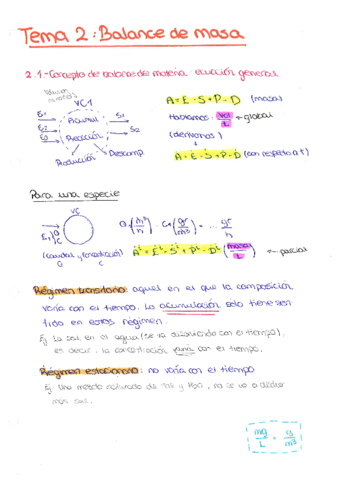 Tema 2: Balance de masa
2.1.- Concepto de balance de materia. Ecuación general
VC1
A = E - S + P - D (masa)
E1 Acumul. S1
Hablamos: vol/t ← global
E2 Reacción S2
E3
(derivamos)
Producción Descomp.
Ȧ = Ė - Ṡ + Ṗ - Ḋ (con respecto a t)
Para una especie
VC
Q (m³/h) · C (gr/m³) = ... gr/h
(caudal y concentración)
Q C
Ȧⁱ = Ėⁱ - Ṡⁱ + Ṗⁱ - Ḋⁱ (masa/t) ← parcial
Régimen transitorio: aquel en el que la composición
varía con el tiempo. La acumulación solo tiene sen-
tido en este régimen.
Ej La sal en el agua (se va disolviendo con el tiempo),
es decir, la concentración varía con el tiempo.
Régimen estacionario: no varía con el tiempo
Ej: Una mezcla saturada de sal y H2O, no se va a disolver
más sal.
mg/L = g/m³